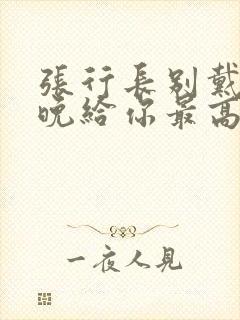 張行長別戴
晚給你最高
一夜人見